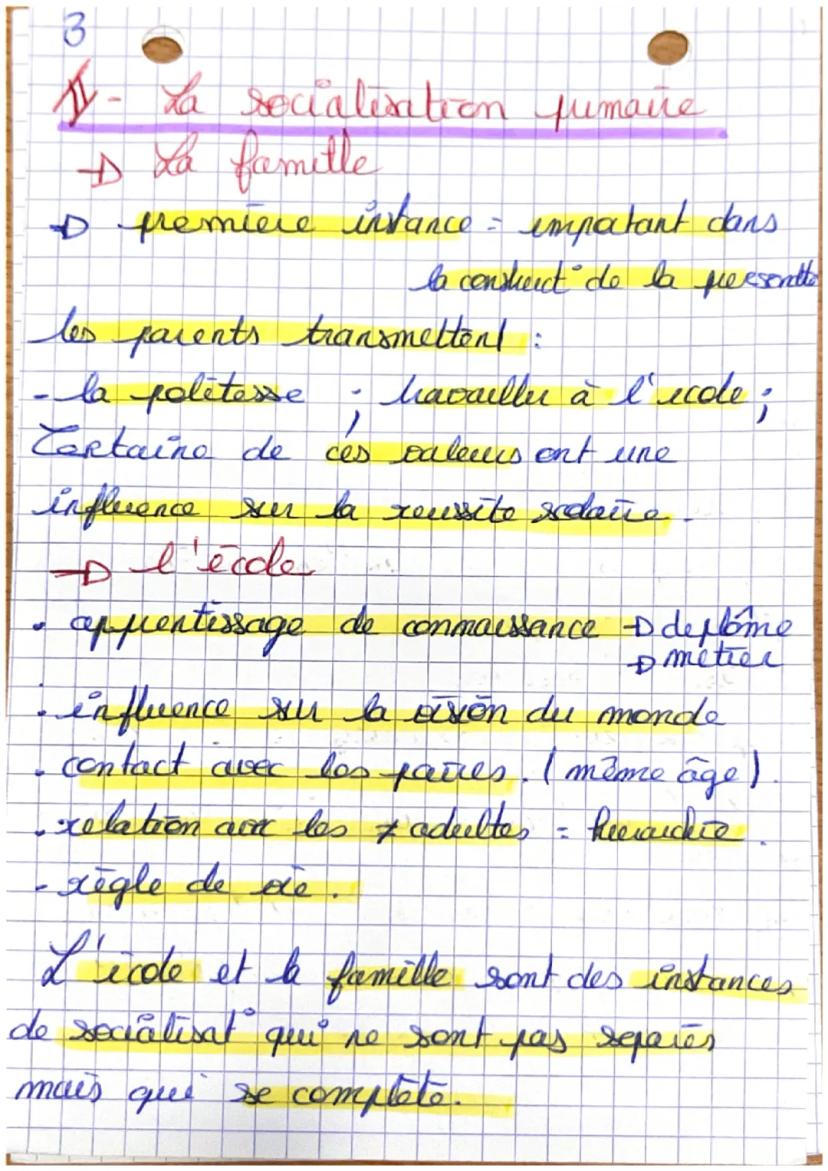 3
II - La socialisation primaire
→ La famille
→ première instance = important dans
la construct° de la personalité
les parents transmettent :
- la politesse ; travailler à l'école ;
Certains de ces valeurs ont une
influence sur la reussite scolaire.
→ l'école
• apprentissage de connaissance → deplôme
→ métier
• influence sur la vision du monde
• contact avec les paires. (même âge).
• relation avec les ≠ adultes = hierarchie.
- règle de vie.
L'école et la famille sont des instances
de socialisat° qui ne sont pas separés
mais qui se complète.